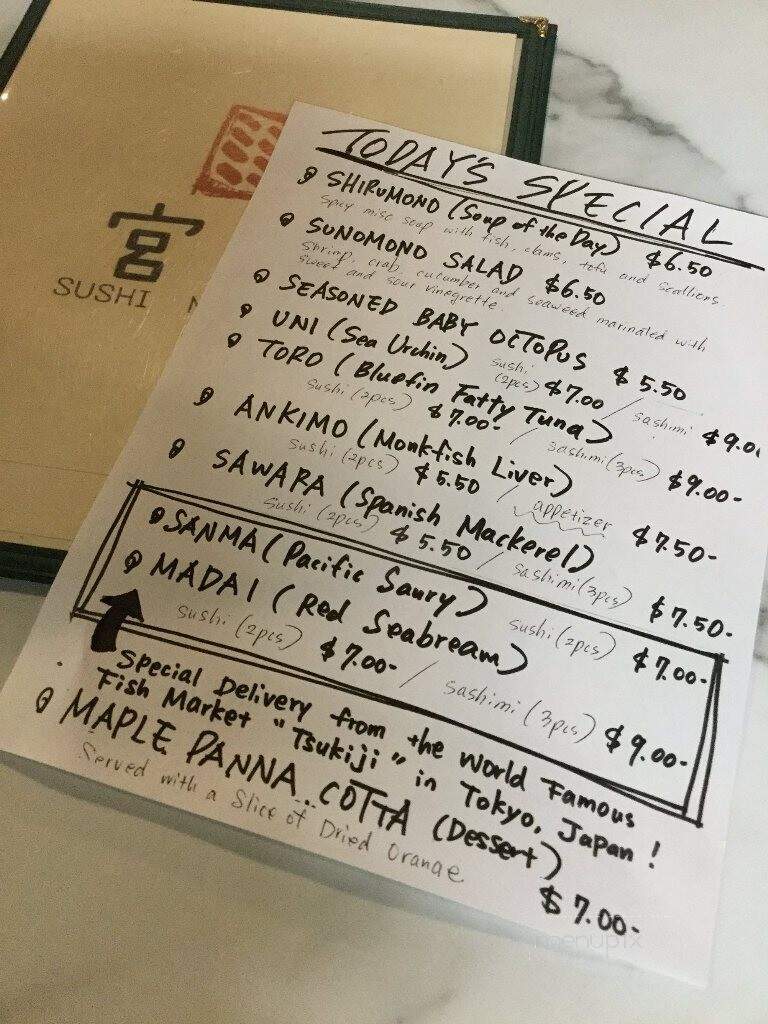 宮
SUSHI
TODAY'S SPECIAL
SHIRUMONO (Soup of the Day) $6.50
Spicy miso soup with fish, clams, tofu and scallions.
SUNOMONO SALAD $6.50
Shrimp, crab, cucumber and seaweed marinated with
sweet and sour vinegrette.
SEASONED BABY OCTOPUS $5.50
UNI (Sea Urchin) sushi (2pcs) $7.00 / sashimi $9.00
TORO (Bluefin Fatty Tuna)
sushi (2pcs) $7.00- / sashimi (3pcs) $9.00-
ANKIMO (Monkfish Liver)
sushi (2pcs) $5.50 / appetizer $7.50-
SAWARA (Spanish Mackerel)
sushi (2pcs) $5.50 / sashimi (3pcs) $7.50-
SANMA (Pacific Saury) sushi (2pcs) $7.00-
MADAI (Red Seabream)
sushi (2pcs) $7.00- / sashimi (3pcs) $9.00-
Special Delivery from the world Famous
Fish Market "Tsukiji" in Tokyo, Japan!
MAPLE PANNA COTTA (Dessert)
Served with a Slice of Dried Orange
$7.00-